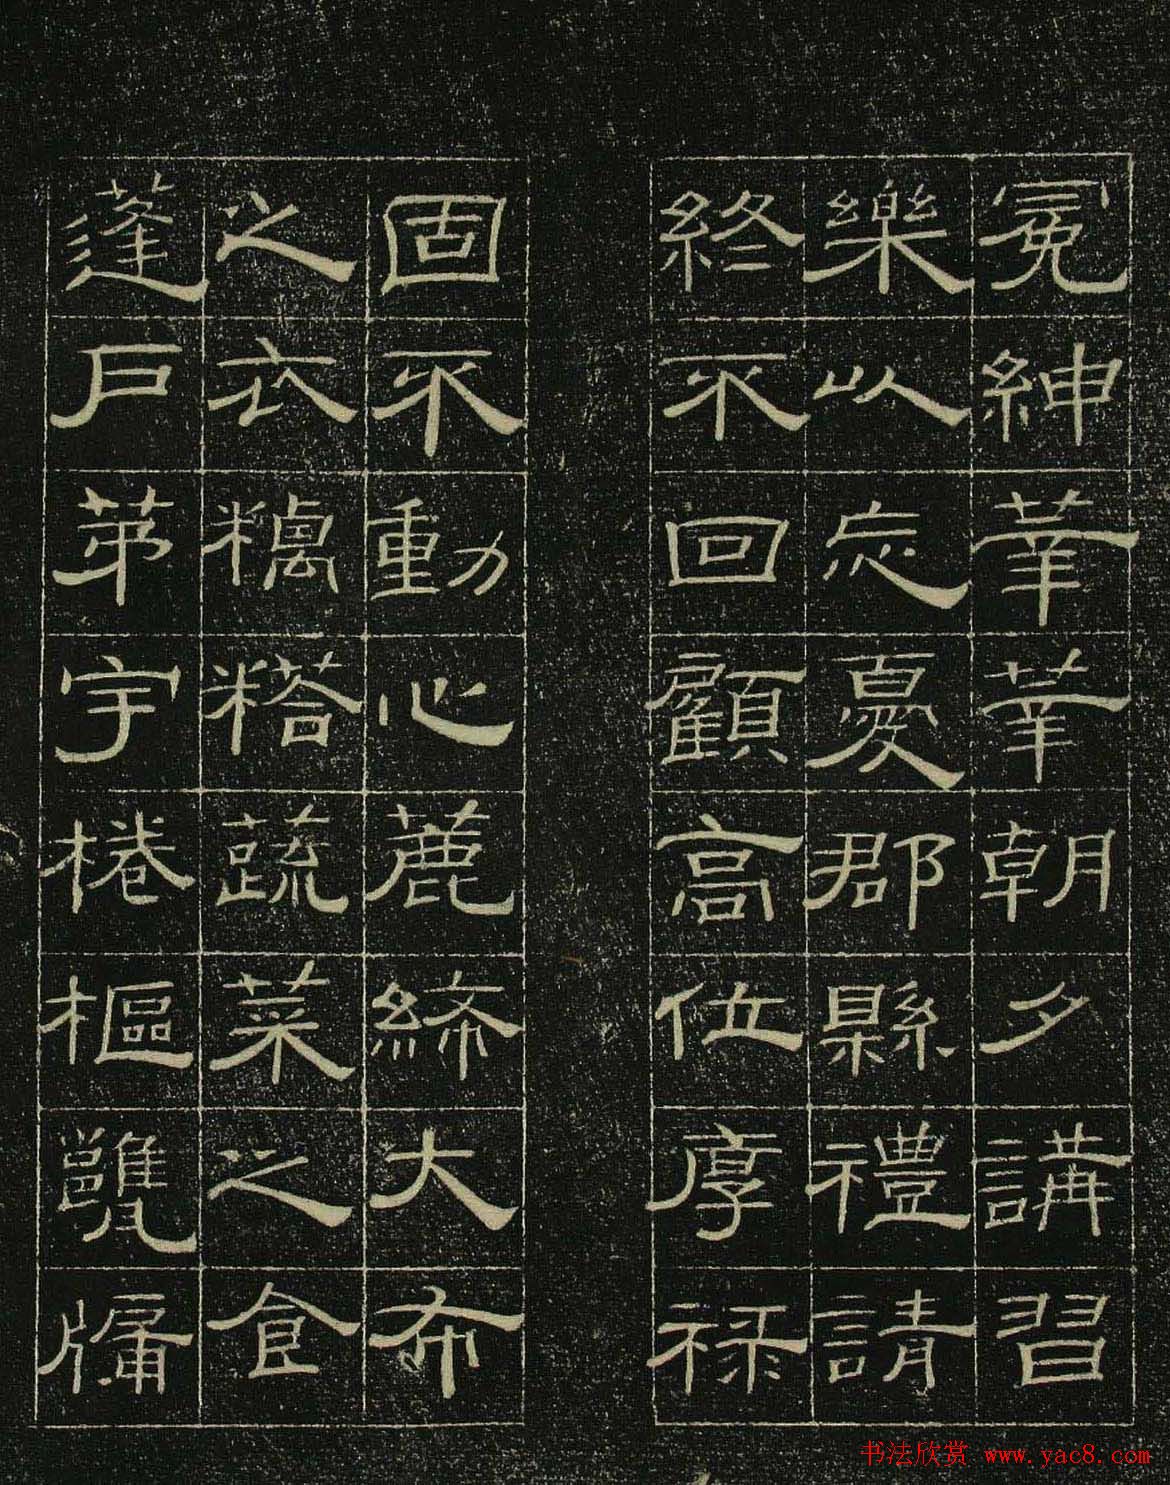 冕紳莘莘朝夕講習
樂以忘憂郡縣禮請
終不回顧高位厚祿
固不動心蔍絺大布
之衣糲荅蔬菜之食
蓬戶茅宇棬樞甕牖
书法欣赏 www.yac8.com